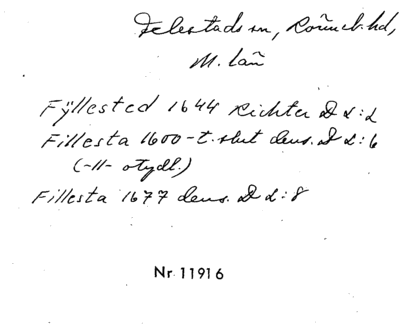 Felestads sn, Rönneb. hd,
M. län
Fÿllested 1644 Richter D 2:2
Fillesta 1600-t. slut dens. D 2:6
(-11- otydl.)
Fillesta 1677 dens. D 2:8
Nr 11916